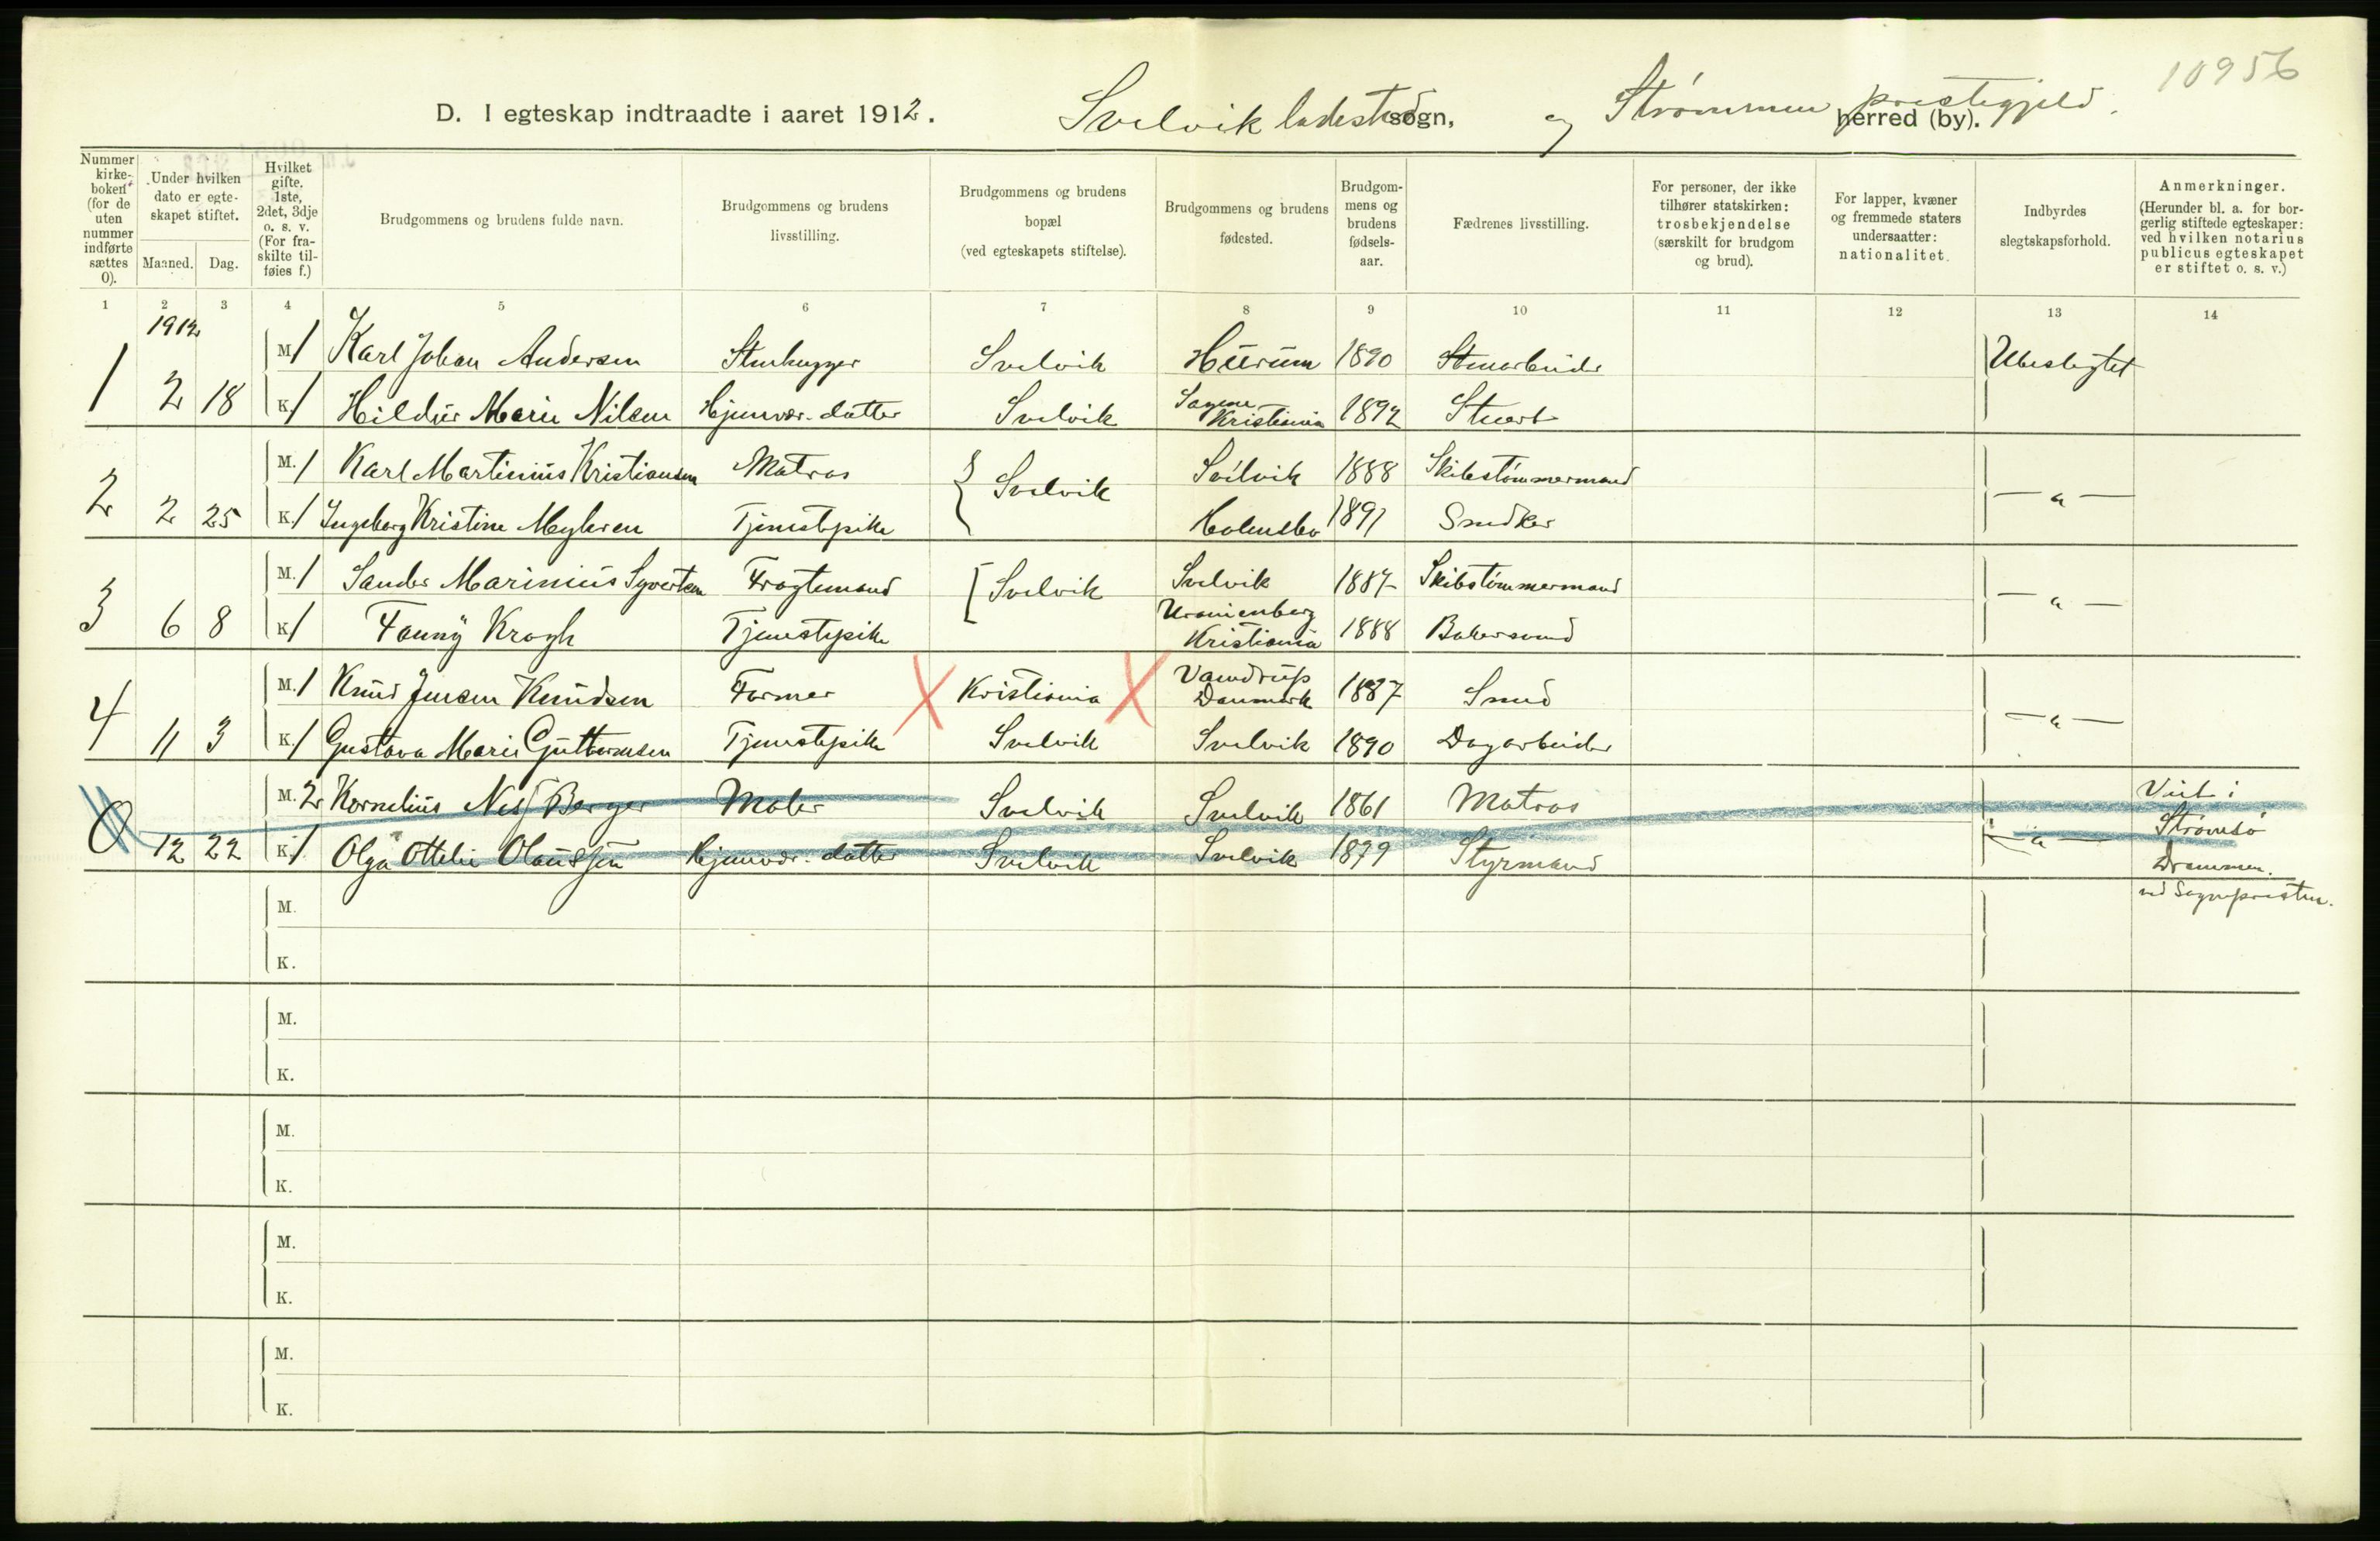 10956
D. I egteskap indtraadte i aaret 1912. Svelvik ladested sogn, og Strømmen prestegjeld. herred (by).
Nummer i kirkeboken (for de uten nummer indførte sættes 0).
Under hvilken dato er egteskapet stiftet.
Maaned. Dag.
Hvilket gifte, 1ste, 2det, 3dje o. s. v. (For fraskilte tilføies f.)
Brudgommens og brudens fulde navn.
Brudgommens og brudens livsstilling.
Brudgommens og brudens bopæl (ved egteskapets stiftelse).
Brudgommens og brudens fødested.
Brudgommens og brudens fødselsaar.
Fædrenes livsstilling.
For personer, der ikke tilhører statskirken: trosbekjendelse (særskilt for brudgom og brud).
For lapper, kvæner og fremmede staters undersaatter: nationalitet.
Indbyrdes slegtskapsforhold.
Anmerkninger. (Herunder bl. a. for borgerlig stiftede egteskaper: ved hvilken notarius publicus egteskapet er stiftet o. s. v.)
1 2 3 4 5 6 7 8 9 10 11 12 13 14
1912
M. 1 Karl Johan Andersen Stenhugger Svelvik Hurum 1890 Stenarbeider Ubeslegtet
1 2 18 K. 1 Hildur Marie Nilsen Hjemvær. datter Svelvik Sagene Kristiania 1892 Stuert
M. 1 Karl Martinius Kristiansen Matros Svelvik Svelvik 1888 Skibstømmermand
2 2 25 K. 1 Ingeborg Kristine Myhren Tjenestepike Holmsbo 1891 Snedker — " —
M. 1 Sander Marinius Syvertsen Fragtemand Svelvik Svelvik 1887 Skibstømmermand
3 6 8 K. 1 Fanny Kragh Tjenestepike Uranienborg Kristiania 1888 Bakersvend — " —
M. 1 Knud Jensen Knudsen Farmer Kristiania Vamdrup Danmark 1887 Smed
4 11 3 K. 1 Gustava Marie Guttormsen Tjenestepike Svelvik Svelvik 1890 Dagarbeider — " —
M. 2 Kornelius Berger Maler Svelvik Svelvik 1861 Matros Viet i
0 12 22 K. 1 Olga Ottelie Olaussen Hjemvær. datter Svelvik Svelvik 1879 Styrmand — " — Strømsø
Drammen.
ved Sognepresten.
M.
K.
M.
K.
M.
K.
M.
K.
M.
K.